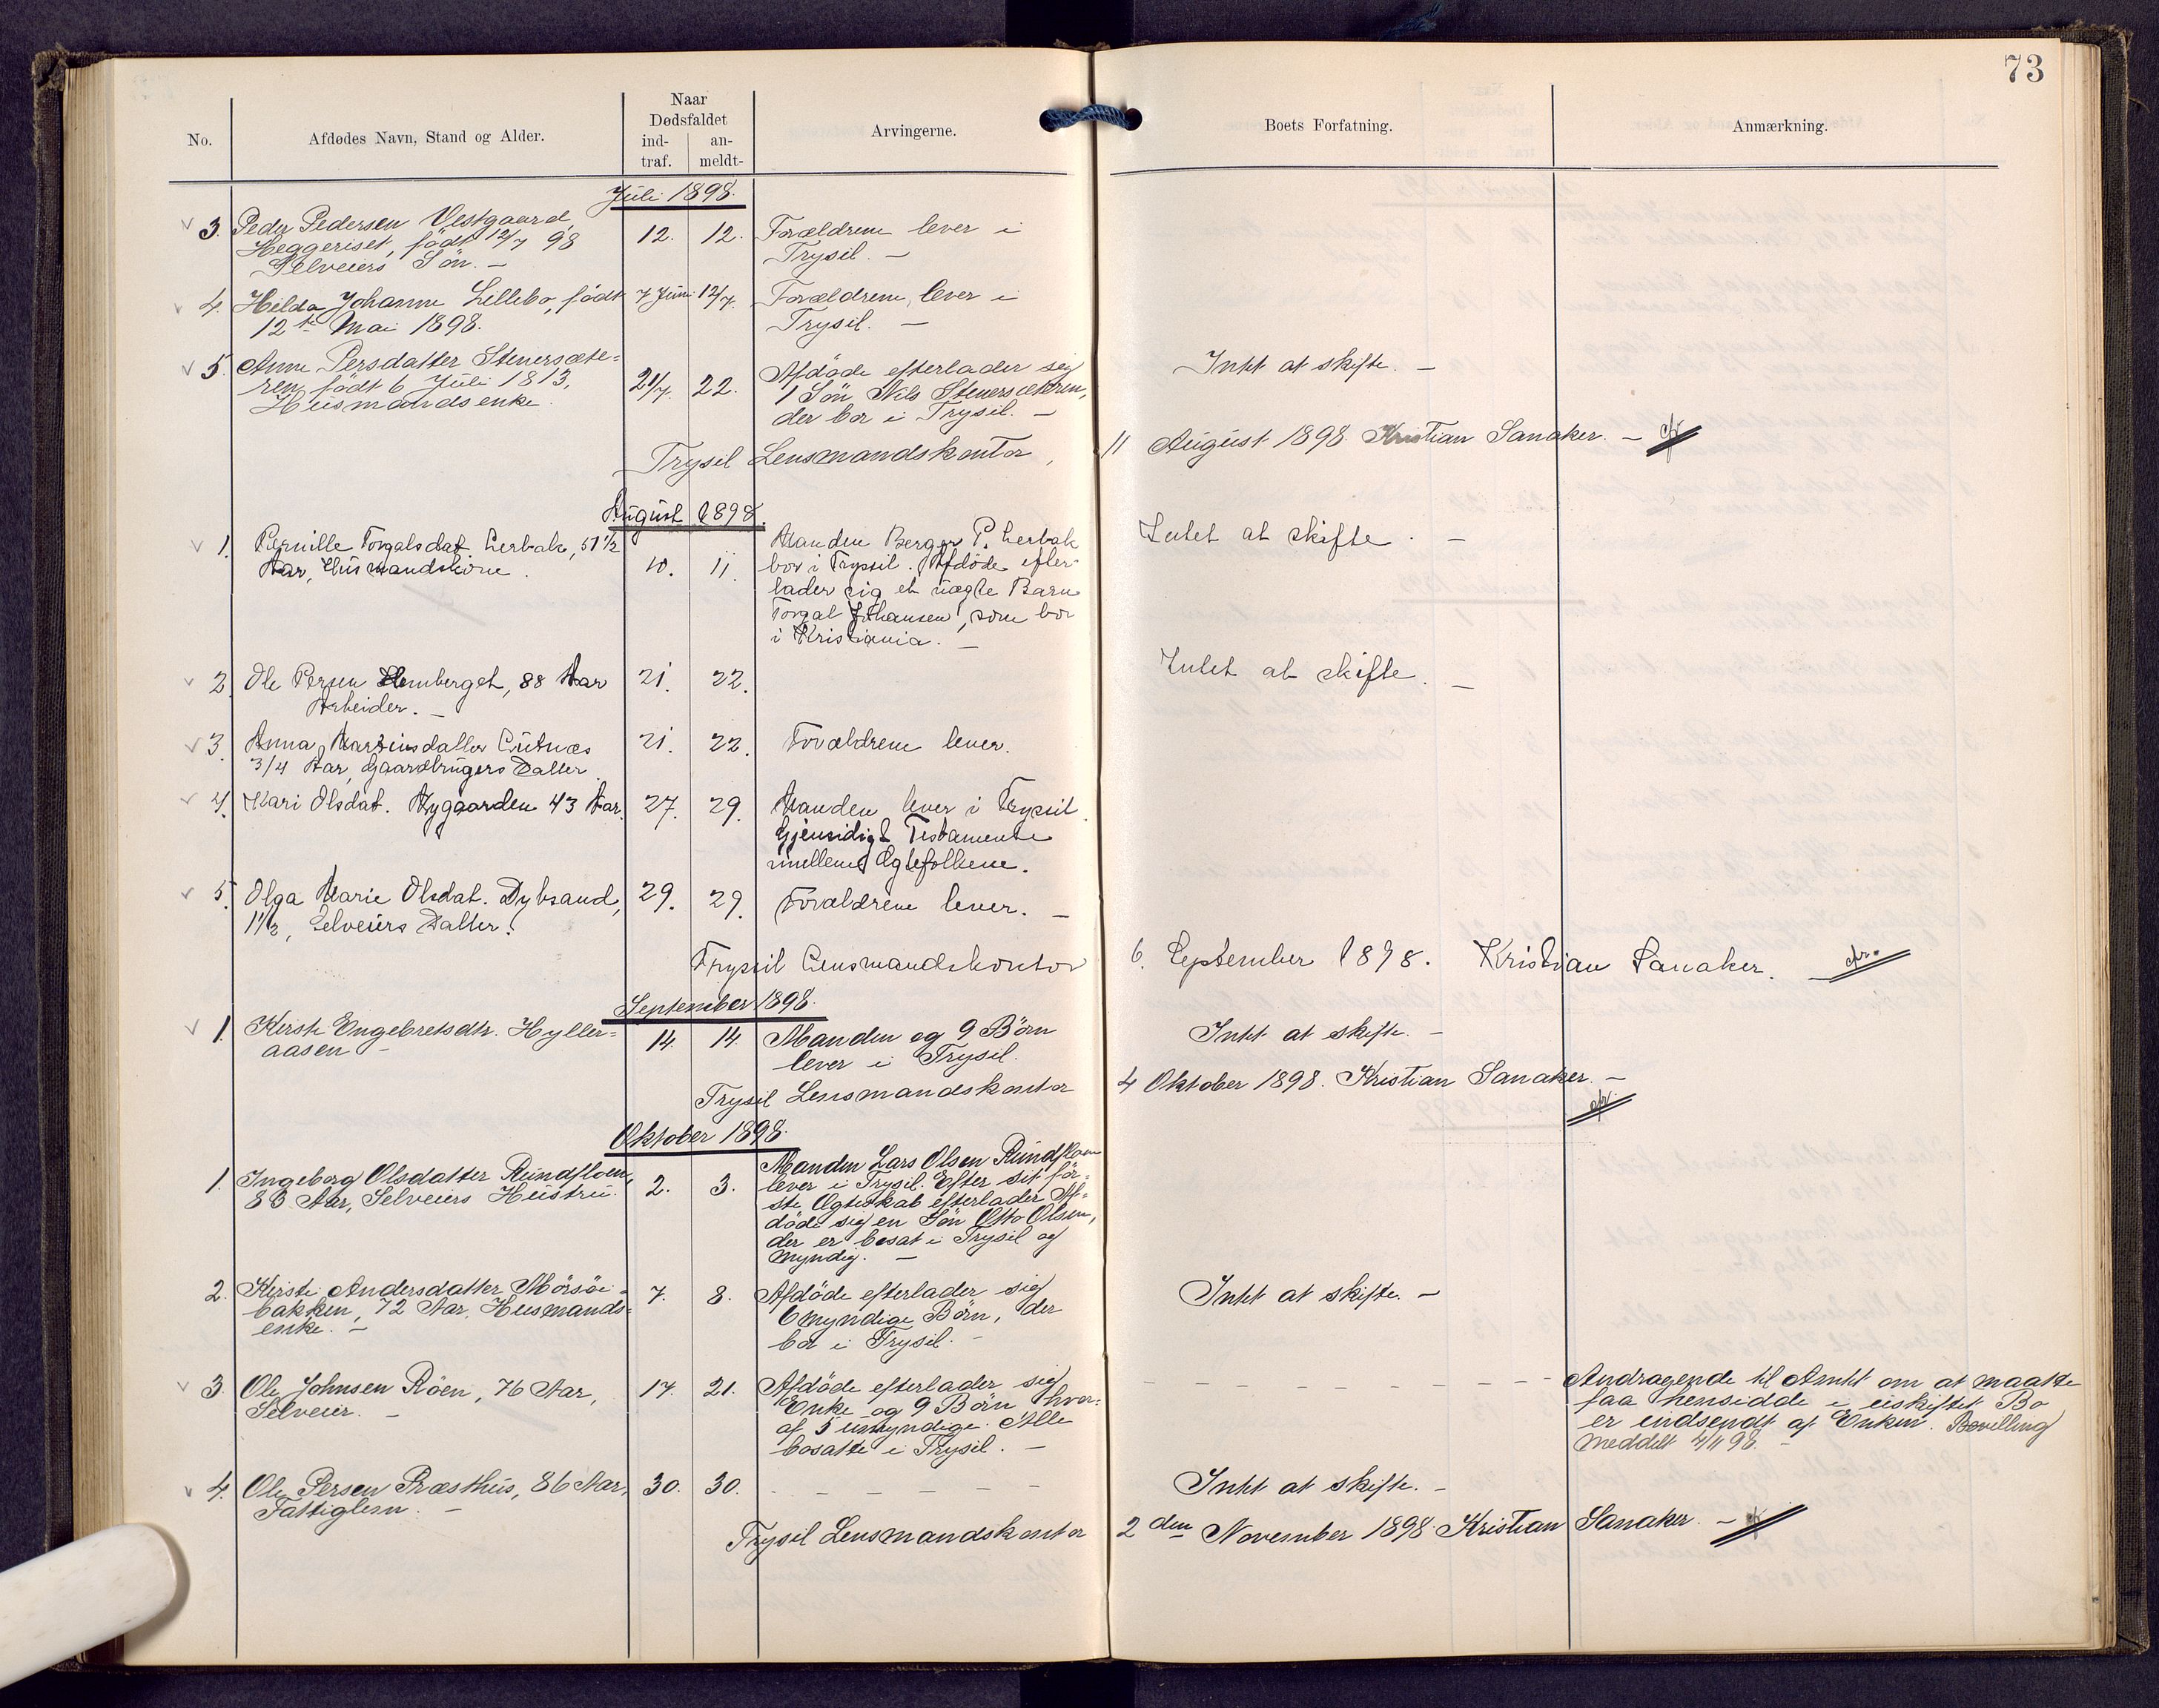 73
No.
Afdødes Navn, Stand og Alder.
Naar
Dødsfaldet
ind-
traf.
an-
meldt-
Arvingerne.
Boets Forfatning.
Anmærkning.
Juli 1898.
3. Peder Pedersen Vestgaard,
Heggeriset, født 12/7 98
Selveiers Søn. –
12. 12.
Forældrene lever i
Trysil. –
4. Hilda Johanne Lillebo, født
12te Mai 1898.
7 Juni 12/7.
Forældrene lever i
Trysil. –
5. Anne Persdatter Stenersæte-
ren, født 6 Juli 1813,
Husmandsenke.
21/7. 22.
Afdøde efterlader sig
1 Søn Nils Stenersæteren,
der bor i Trysil. –
Intet at skifte. –
Trysil Lensmandskontor, 11 August 1898. Kristian Sanaker. –
August 1898.
1. Pernille Torgalsdat. Lerbak, 51½
Aar, Husmandskone.
10. 11.
Manden Berger P. Lerbak
bor i Trysil. Afdøde efter-
lader sig et uægte Barn
Torgal Johansen, som bor
i Kristiania. –
Intet at skifte. –
2. Ole Persen Elemberget, 88 Aar
Arbeider. –
21. 22.
Intet at skifte. –
3. Anna Martinsdatter Lutnæs
3/4 Aar, Gaardbrugers Datter.
21. 22.
Forældrene lever.
4. Kari Olsdat. Nygaarden 43 Aar.
27. 29.
Manden lever i Trysil.
Gjensidigt Testamente
mellem Ægtefolkene.
5. Olga Marie Olsdat. Dybsand,
1½, Selveiers Datter.
29. 29.
Forældrene lever. –
Trysil Lensmandskontor 6. September 1898. Kristian Sanaker.
September 1898.
1. Kirsti Engebretsdtr. Hyller-
aasen –
14. 14.
Manden og 9 Børn
lever i Trysil.
Intet at skifte. –
Trysil Lensmandskontor 4 Oktober 1898. Kristian Sanaker. –
Oktober 1898.
1. Ingeborg Olsdatter Rundfloen,
83 Aar, Selveiers Hustru.
2. 3.
Manden Lars Olsen Rundfloen
lever i Trysil. Efter sit før-
ste Ægteskab efterlader Af-
døde sig en Søn Otto Olsen,
der er bosat i Trysil og
myndig. –
2. Kirsti Andersdatter Mørsöi-
bakken, 72 Aar, Husmands-
enke. –
7. 8.
Afdøde efterlader sig
6 myndige Børn, der
bor i Trysil. –
Intet at skifte. –
3. Ole Johnsen Röen, 76 Aar,
Selveier. –
17. 21.
Afdøde efterlader sig
Enke og 9 Børn hvor-
af 5 umyndige. Alle
bosatte i Trysil. –
Andragende til Amtet om at maatte
faa hensidde i uskiftet Bo
er indsendt af Enken. Bevilling
meddelt 4/11 98. –
4. Ole Persen Præsthus, 86 Aar,
Fattiglem. –
30. 30.
Intet at skifte. –
Trysil Lensmandskontor 2den November 1898. Kristian Sanaker. –